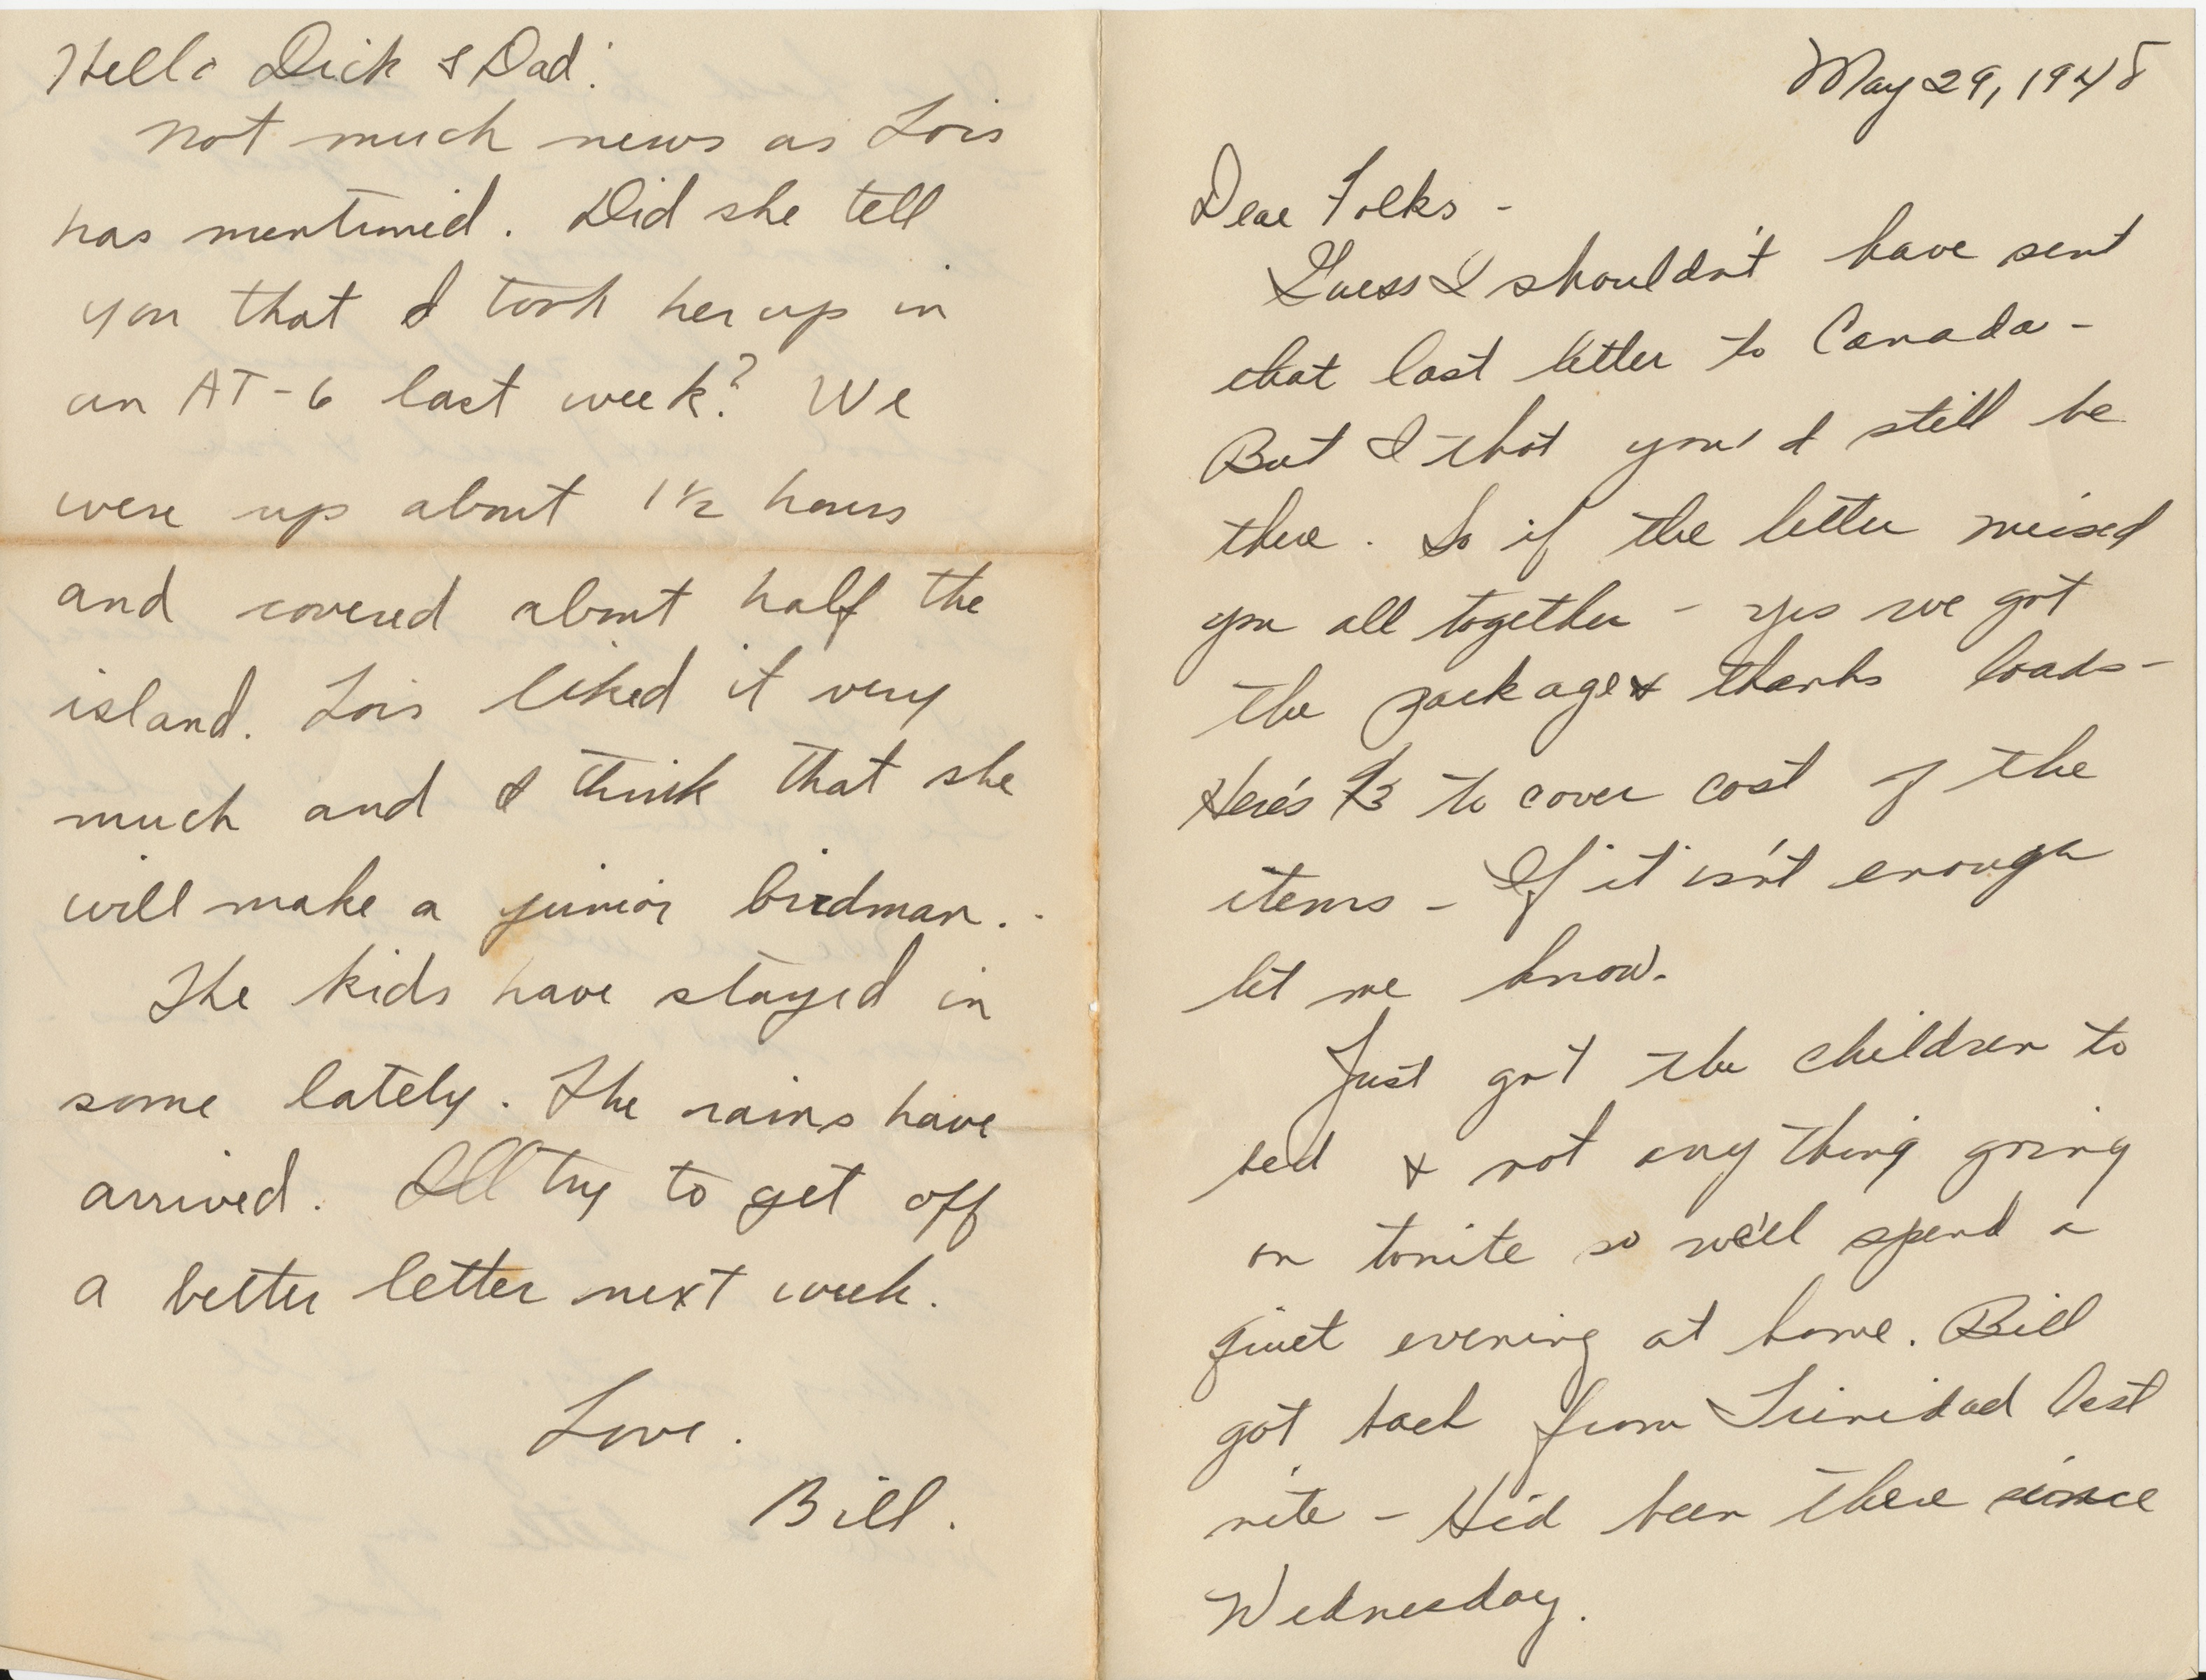 Hello Dick & Dad:
Not much news as Lois
has mentioned. Did she tell
you that I took her up in
an AT-6 last week? We
were up about 1 1/2 hours
and covered about half the
island. Lois liked it very
much and I think that she
will make a junior birdman..
The kids have stayed in
some lately. The rains have
arrived. Ill try to get off
a better letter next week.
Love.
Bill.
May 29, 1948
Dear Folks -
Guess I shouldn't have sent
that last letter to Canada -
But I thot you'd still be
there. So if the letter missed
you all together - yes we got
the package & thanks loads -
Here's $3 to cover cost of the
items - If it isn't enough
let me know.
Just got the children to
bed & not anything going
on tonite so we'll spend a
quiet evening at home. Bill
got back from Trinidad last
nite - He'd been there since
Wednesday.